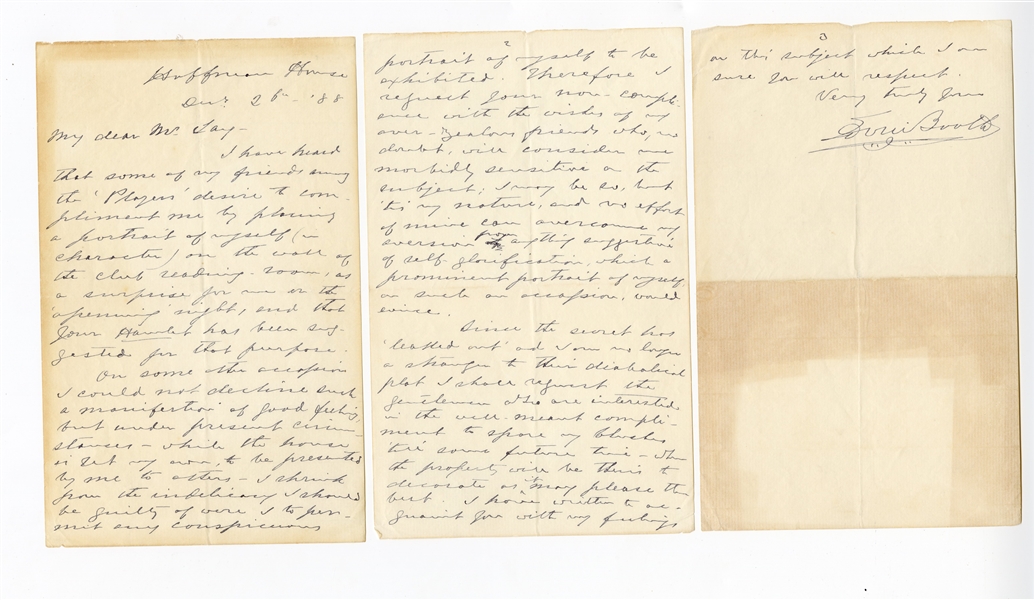 Hoffman House
Dec. 26th '88
My dear Mr. Lay-
I have heard
that some of my friends among
the 'Players' desire to com-
pliment me by placing
a portrait of myself (in
character) on the wall of
the club reading-room, as
a surprise for me on the
'openning' night, and that
your Hamlet has been sug-
gested for that purpose.
On some other occasion
I could not decline such
a manifestion of good feeling,
but under present circum-
stances - while the house
is yet my own, to be presented
by me to others - I shrink
from the indelicacy I should
be guilty of were I to per-
mit any conspicuous
2
portrait of myself to be
exhibited. Therefore I
request your non-compli-
ence with the wishes of my
over-zealous friends who, no
doubt, will consider me
morbidly sensitive on the
subject; I may be so, but
'tis my nature, and no effort
of mine can overcome my
aversion from anything suggestive
of self-glorification, which a
prominent portrait of myself,
on such an occasion, would
evince.
Since the secret has
'leaked out' and I am no longer
a stranger to their diabolical
plot I shall request the
gentlemen who are interested
in the well-meant compli-
ment to spare my blushes
till some future time - when
the property will be theirs to
decorate as may please them
best. I have written to ac-
quaint you with my feelings
3
on this subject which I am
sure you will respect.
Very truly yours
Edwin Booth